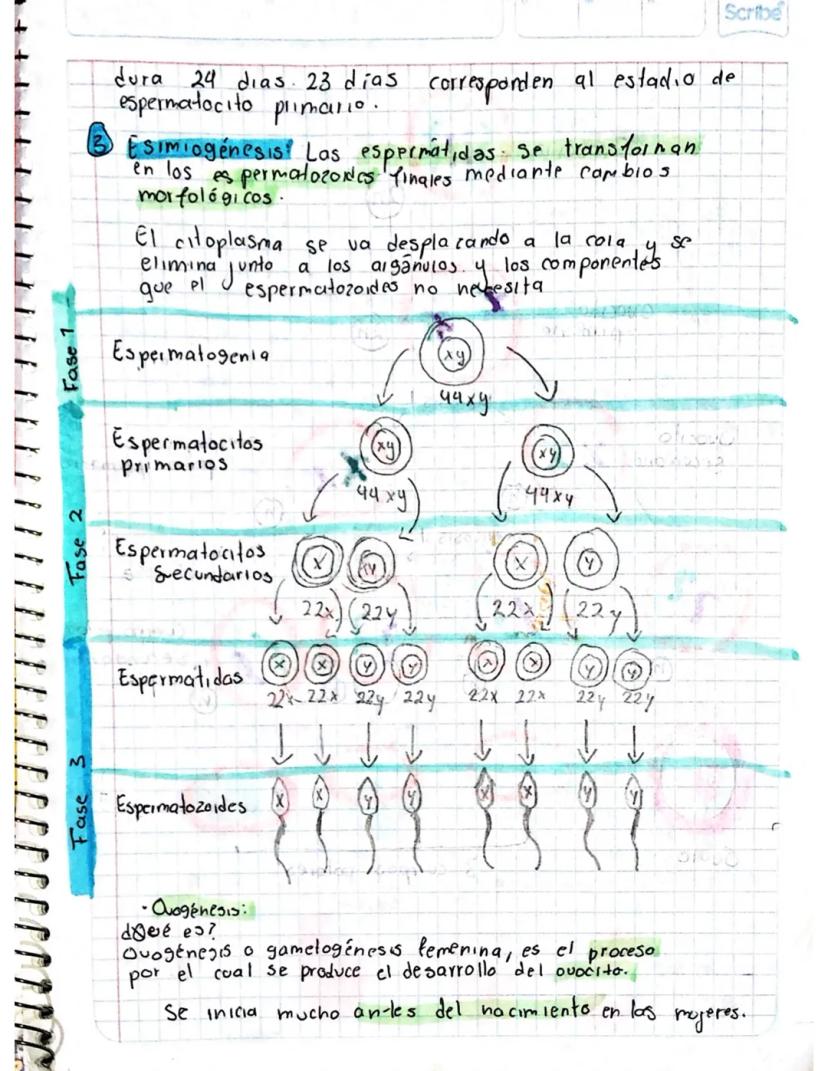 Scribe
dura 24 dias. 23 días corresponden al estadio de
espermatocito primario.
3 Esimiogénesis: Las espermátidas se transforman
en los espermatozoides finales mediante cambios
morfológicos.
El citoplasma se va desplazando a la cola y se
elimina junto a los argánulos y los componentes
que el espermatozoides no necesita
Fase 1
Espermatogenia
xy
44xy
Fase 2
Espermatocitos
primarios
xy xy
44xy 44xy
Espermatocitos
secundarios
x xy x y
22x 22y 22x 22y
Espermatidas
x x y y x x y y
22x 22x 22y 22y 22x 22x 22y 22y
Fase 3
Espermatozoides
x x y y x x y y
· Ovogénesis:
¿Qué es?
Ovogénesis o gametogénesis femenina, es el proceso
por el cual se produce el desarrollo del ovocito.
Se inicia mucho antes del nacimiento en las mujeres.